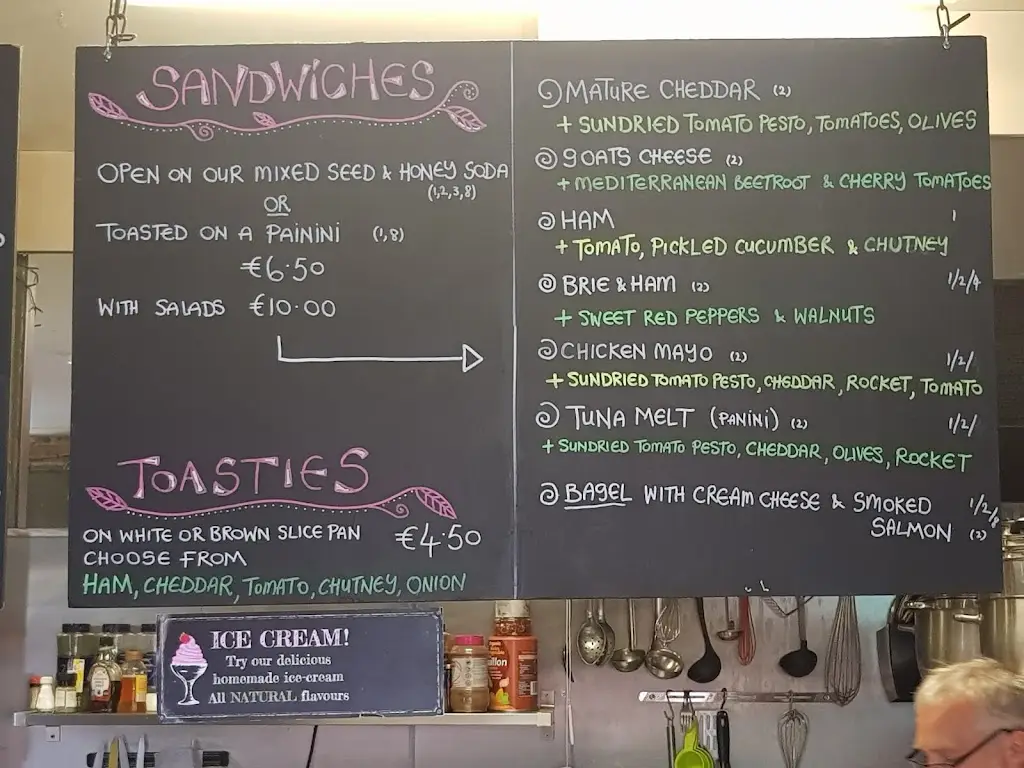 SANDWICHES
OPEN ON OUR MIXED SEED & HONEY SODA
(1,2,3,8)
OR
TOASTED ON A PAININI (1,8)
€6.50
WITH SALADS €10.00
TOASTIES
ON WHITE OR BROWN SLICE PAN €4.50
CHOOSE FROM
HAM, CHEDDAR, TOMATO, CHUTNEY, ONION
MATURE CHEDDAR (2)
+ SUNDRIED TOMATO PESTO, TOMATOES, OLIVES
GOATS CHEESE (2)
+ MEDITERRANEAN BEETROOT & CHERRY TOMATOES
HAM 1
+ TOMATO, PICKLED CUCUMBER & CHUTNEY
BRIE & HAM (2) 1/2/4
+ SWEET RED PEPPERS & WALNUTS
CHICKEN MAYO (2) 1/2/
+ SUNDRIED TOMATO PESTO, CHEDDAR, ROCKET, TOMATO
TUNA MELT (PANINI) (2) 1/2/
+ SUNDRIED TOMATO PESTO, CHEDDAR, OLIVES, ROCKET
BAGEL WITH CREAM CHEESE & SMOKED 1/2/
SALMON (2)
ICE CREAM!
Try our delicious
homemade ice-cream
All NATURAL flavours